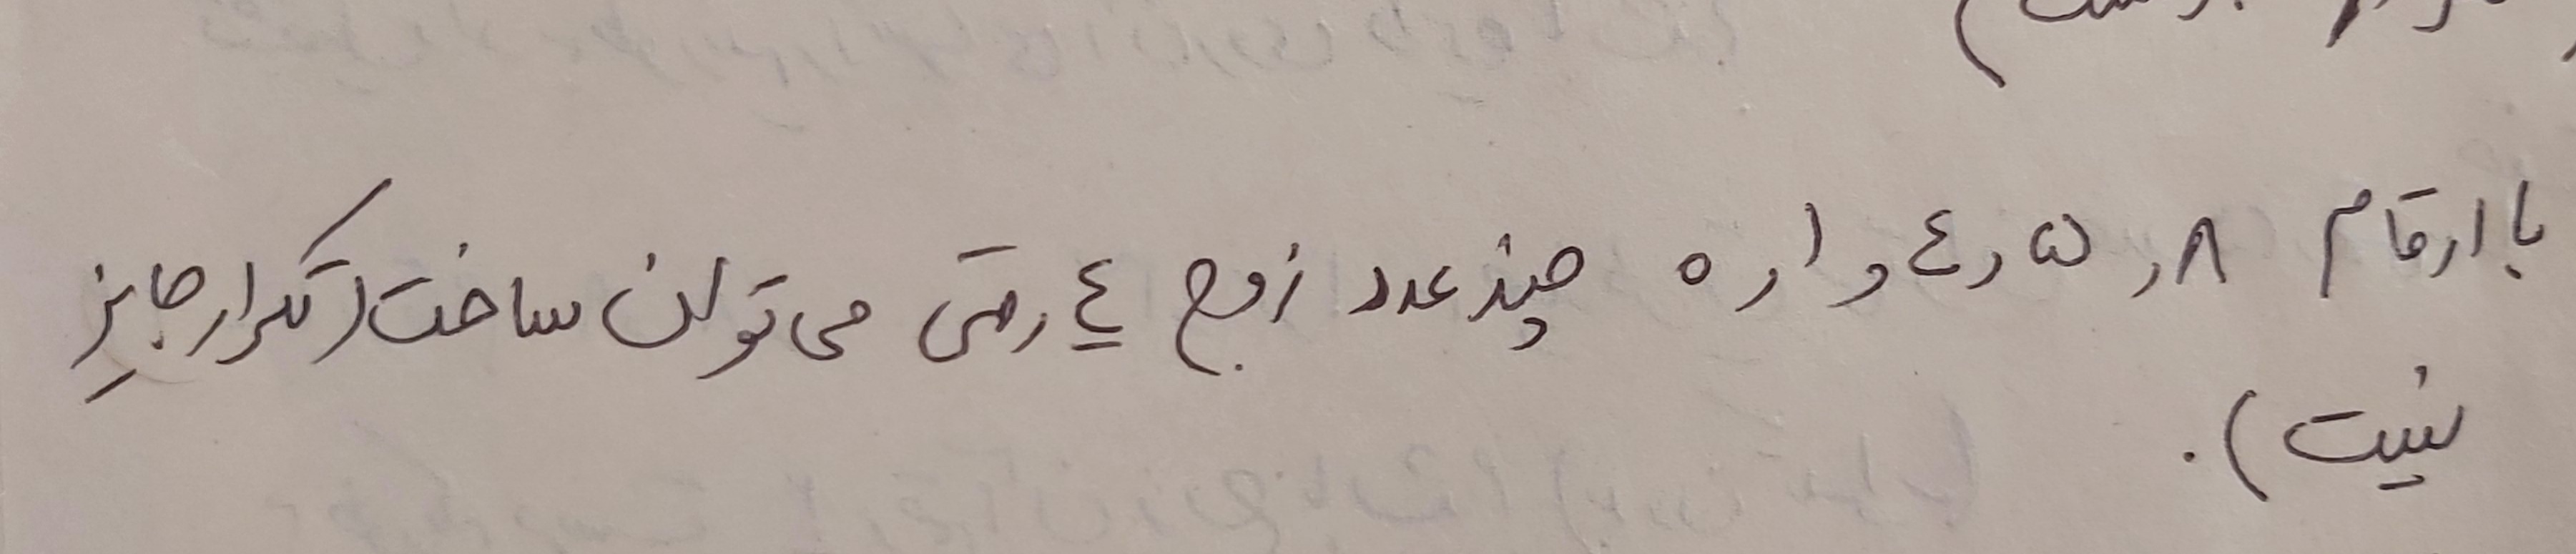 با ارقام ۸ و ۵ و ٤ و ۱ و ۰ چند عدد زوج ٤ رقمی می توان ساخت (تکرار جایز
نیست).